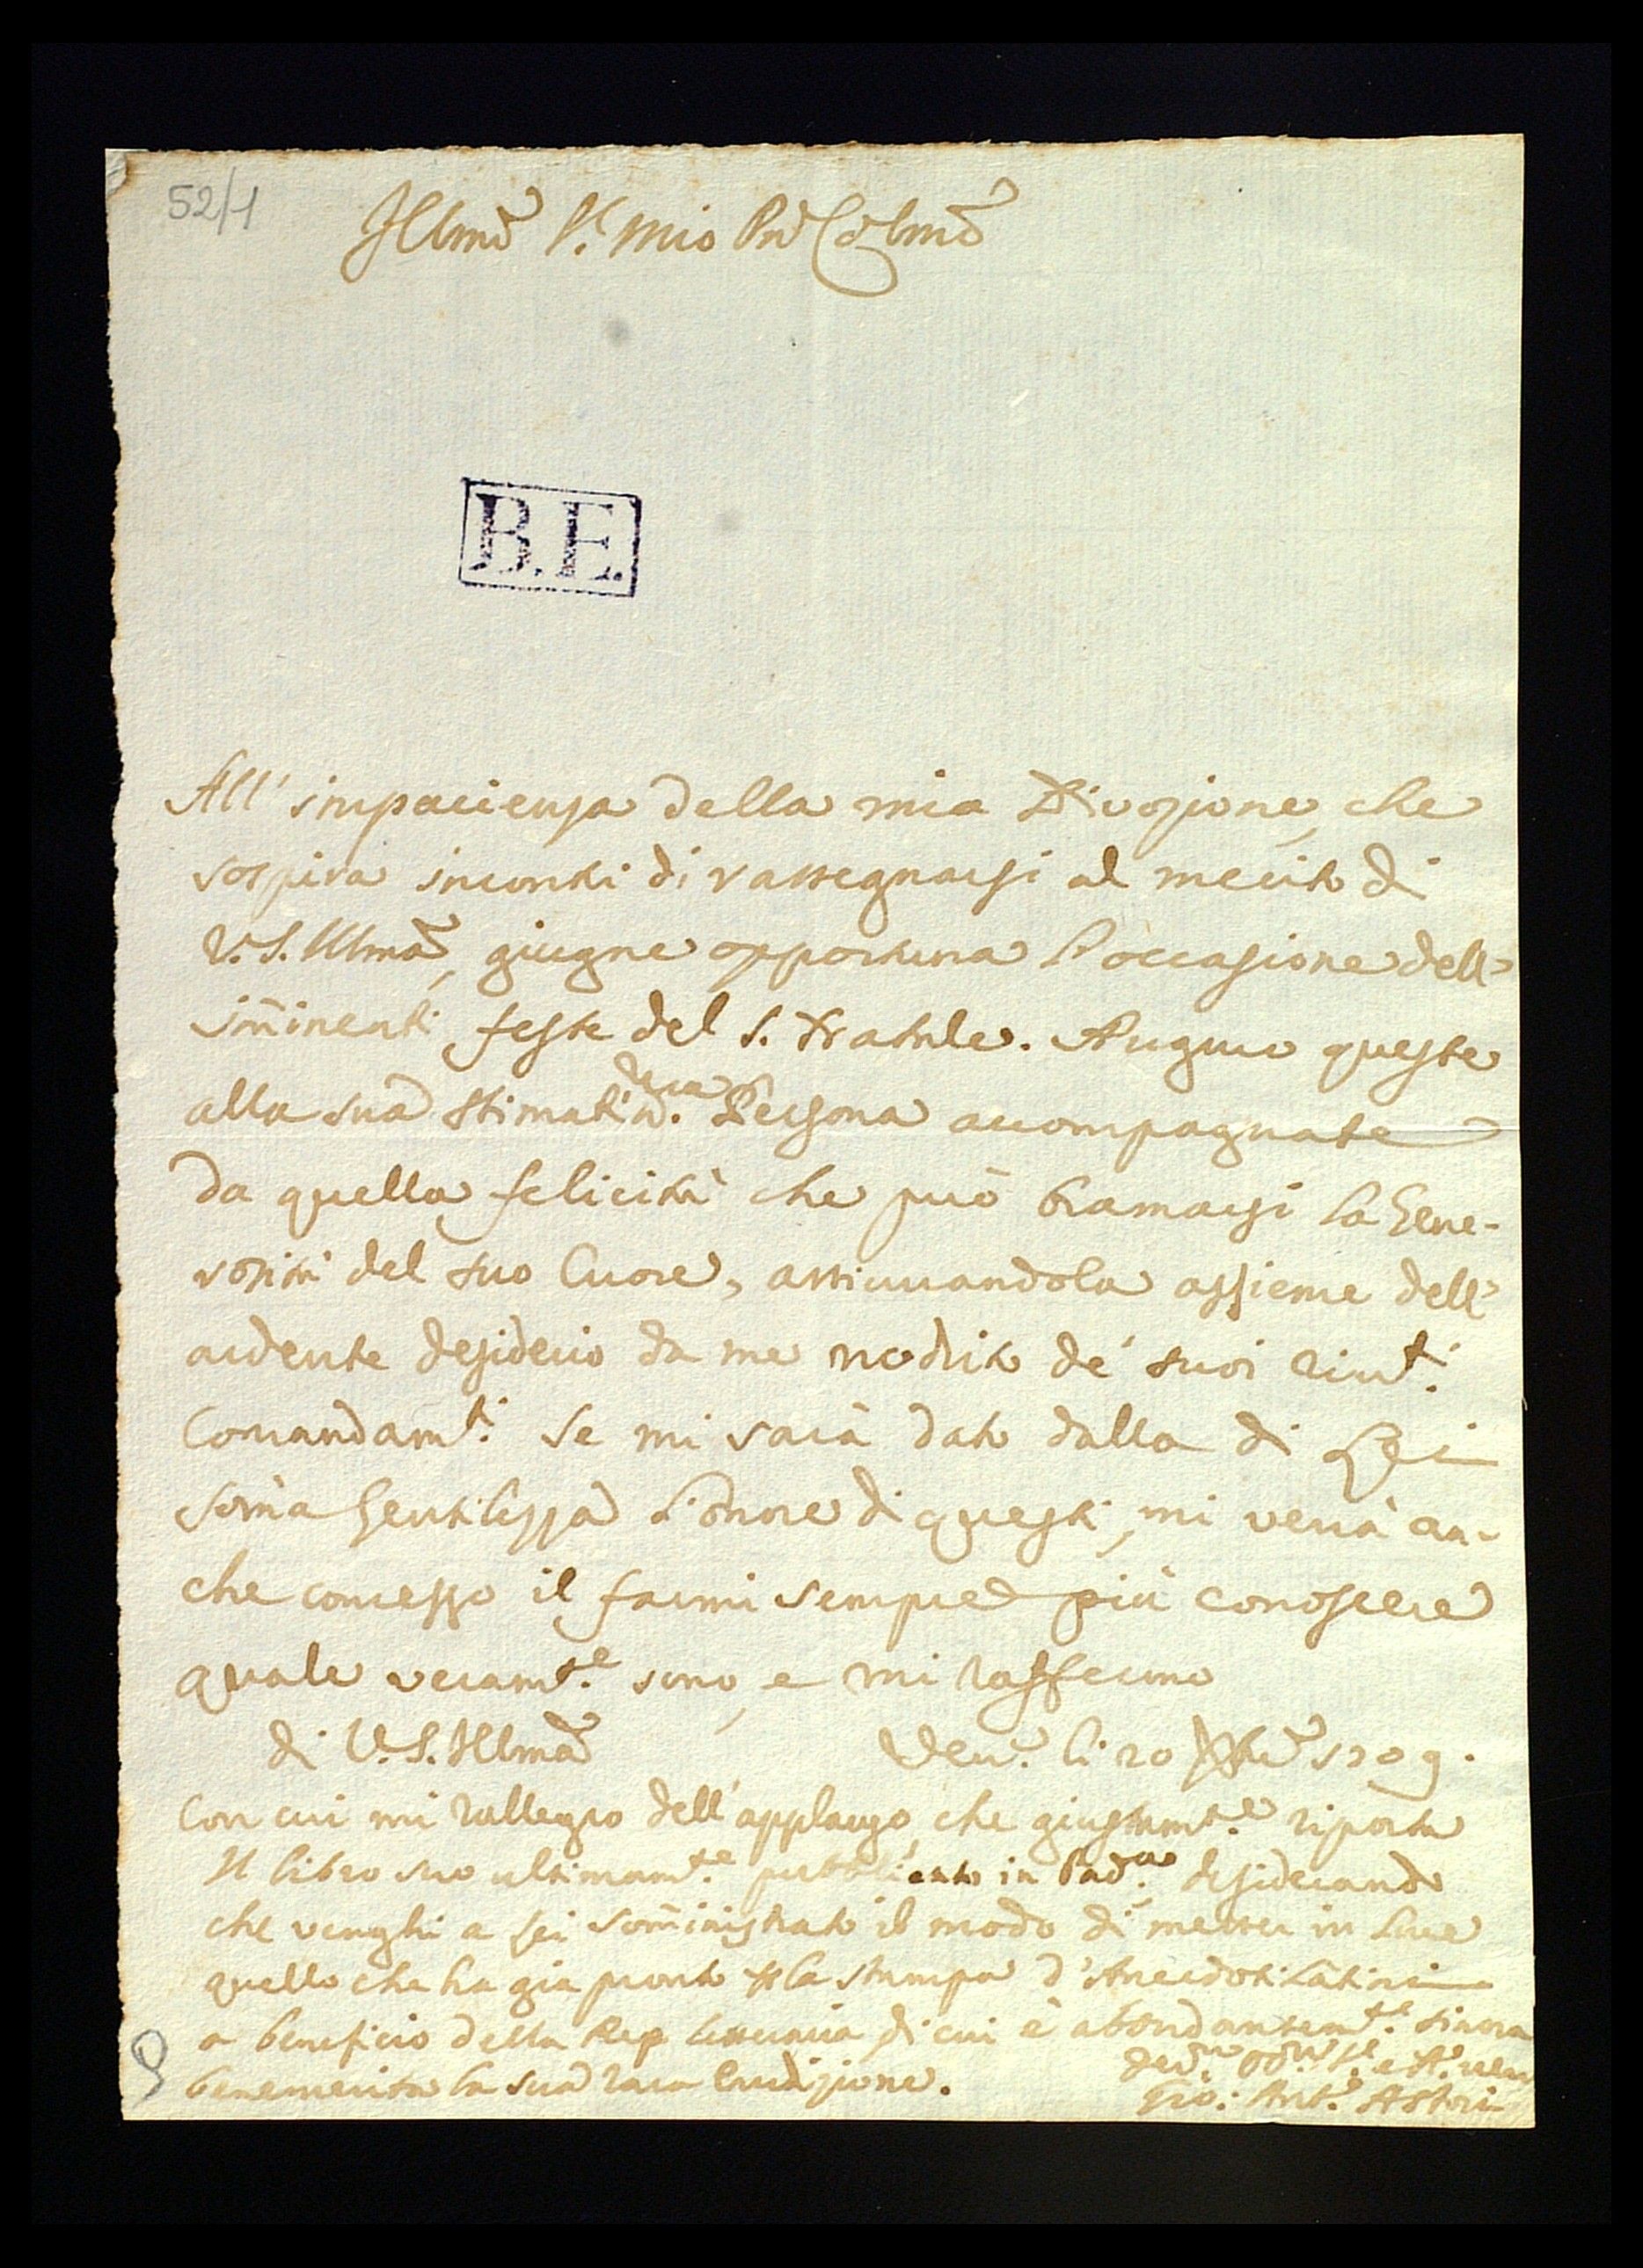 52/1
Illmo Sr. mio Pne Colmo
B.E.
All' impacienza della mia Divozione, che
sospira incontri di rassegnarsi al merito di
V.S. Illma, giugne opportuna l'occasione dell'
imminenti feste del S. Natale. Auguro queste
alla sua stimatis.ma Persona accompagnate
da quella felicità che può bramarsi la Gene-
rosità del suo Cuore, assicurandola assieme dell'
ardente desiderio da me nodrito de' suoi riu.ti
Comandam.ti. Se mi sarà dato dalla di Lei
soma Gentilezza l'onore di questi, mi verrà an-
che concesso il farmi sempre più conoscere
quale veram.te sono, e mi raffermo
di V.S. Illma Ven.a li 20 Xbre 1709.
Con cui mi rallegro dell'applauso, che giustam.te riporta
Il libro suo ultimam.te publicato in Pad.a, desiderando
che venghi a lei somministrato il modo di metter in luce
quello che ha già pronto p la stampa d'Anecdoti Latini
a beneficio della Rep. letteraria, di cui è abondantem.te sinora
benemerita la sua rara Erudizione.
Dev.mo Obb.mo S.re e
Gio: Ant.o Astori